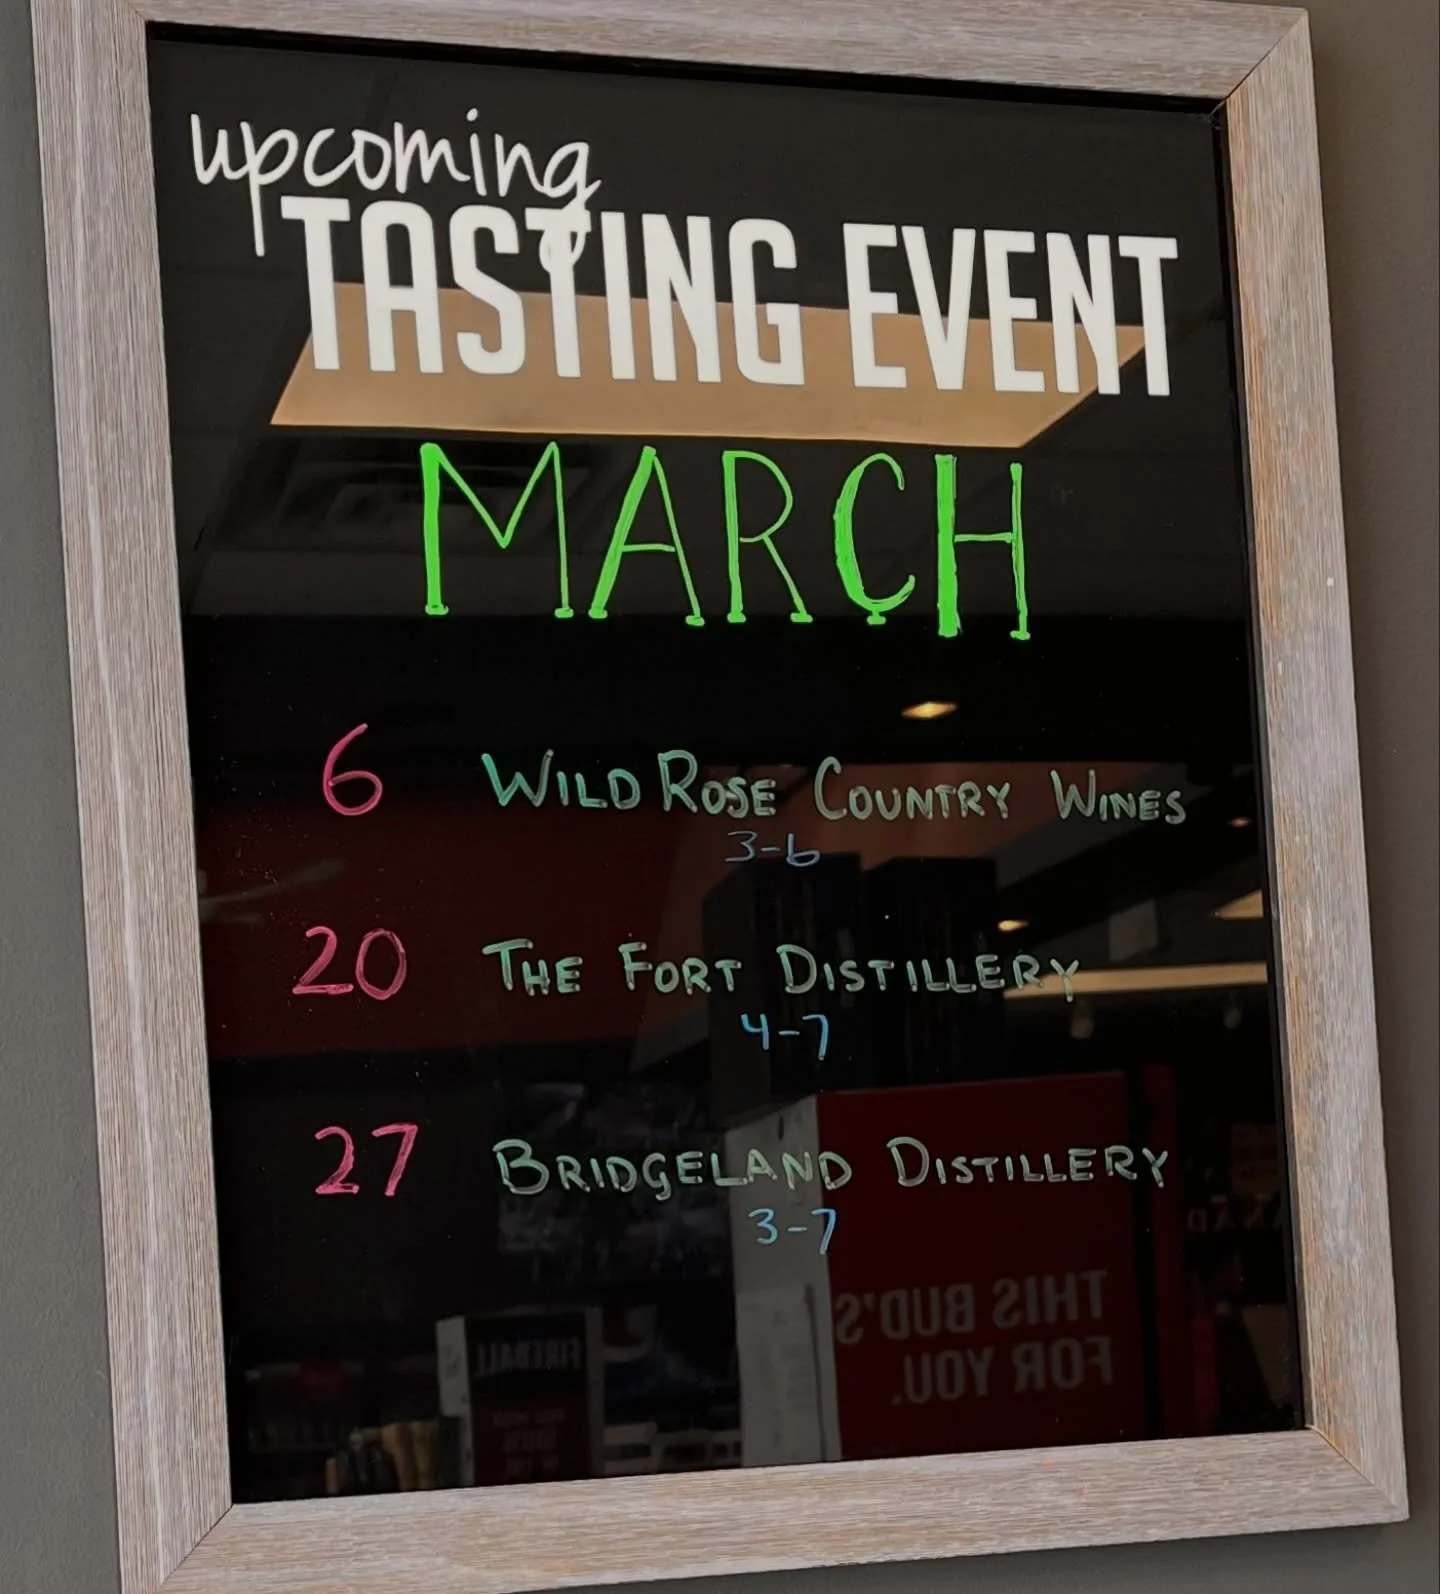 upcoming
TASTING EVENT
MARCH
6 WILD ROSE COUNTRY WINES
3-6
20 THE FORT DISTILLERY
4-7
27 BRIDGELAND DISTILLERY
3-7
THIS BUD'S
FOR YOU.
FIREBALL